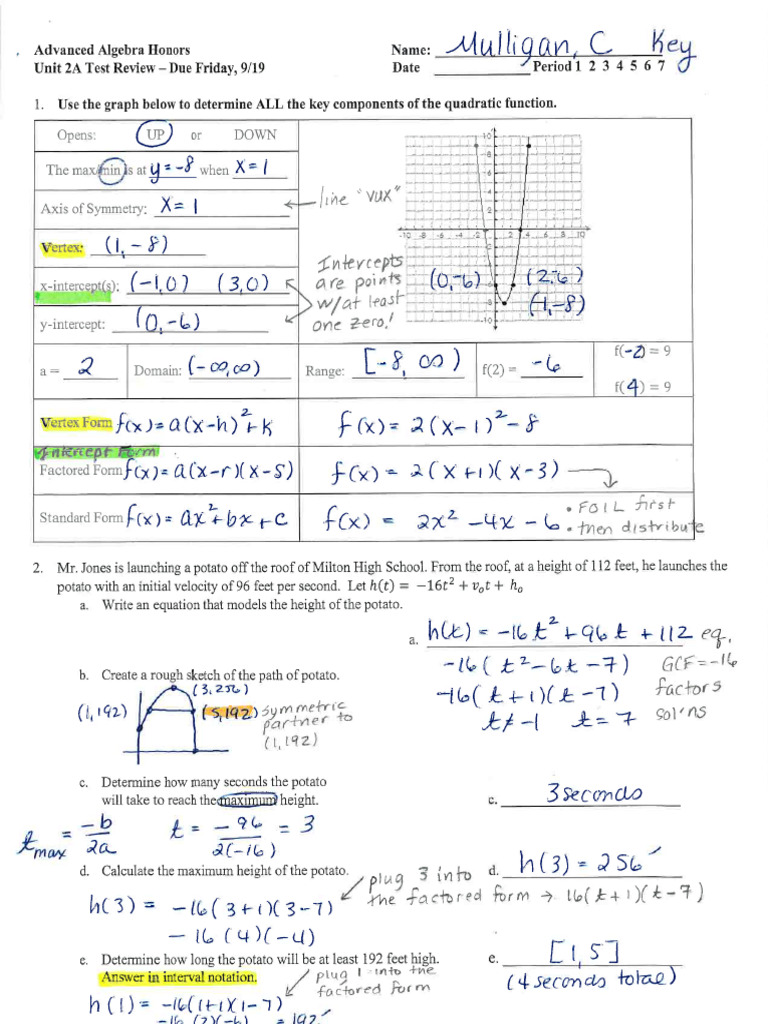 Advanced Algebra Honors Name: Mulligan, C Key
Unit 2A Test Review – Due Friday, 9/19 Date __________ Period 1 2 3 4 5 6 7
1. Use the graph below to determine ALL the key components of the quadratic function.
Opens: UP or DOWN
The max/min is at y = -8 when x = 1
Axis of Symmetry: x = 1
← line "vux"
Vertex: (1, -8)
x-intercept(s): (-1,0) (3,0)
y-intercept: (0, -6)
Intercepts
are points
w/ at least
one zero!
10
8
6
4
2
-10 -8 -6 -4 -2 2 4 6 8 10
-10
(0,-6) (2,-6)
(1,-8)
a = 2 Domain: (-∞,∞) Range: [-8, ∞) f(2) = -6 f(-2) = 9
f(4) = 9
Vertex Form f(x) = a(x-h)²+k f(x) = 2(x-1)² - 8
Intercept Form
Factored Form f(x) = a(x-r)(x-s) f(x) = 2(x+1)(x-3)
Standard Form f(x) = ax²+bx+c f(x) = 2x² - 4x - 6
• FOIL first
• then distribute
2. Mr. Jones is launching a potato off the roof of Milton High School. From the roof, at a height of 112 feet, he launches the
potato with an initial velocity of 96 feet per second. Let h(t) = −16t² + v₀t + h₀
a. Write an equation that models the height of the potato.
a. h(t) = -16t² + 96t + 112 eq.
-16(t² - 6t - 7) GCF = -16
-16(t+1)(t-7) factors
t≠-1 t = 7 sol'ns
b. Create a rough sketch of the path of potato.
(3,256)
(1,192) (5,192) symmetric
partner to
(1,192)
c. Determine how many seconds the potato
will take to reach the maximum height.
c. 3 seconds
t max = -b/2a t = -96/2(-16) = 3
d. Calculate the maximum height of the potato.
d. h(3) = 256
plug 3 into
the factored form → 16(t+1)(t-7)
h(3) = -16(3+1)(3-7)
-16(4)(-4)
e. Determine how long the potato will be at least 192 feet high.
Answer in interval notation.
e. [1,5]
(4 seconds total)
plug 1 into the
factored form
h(1) = -16(1+1)(1-7)
-16(2)(-6) = 192